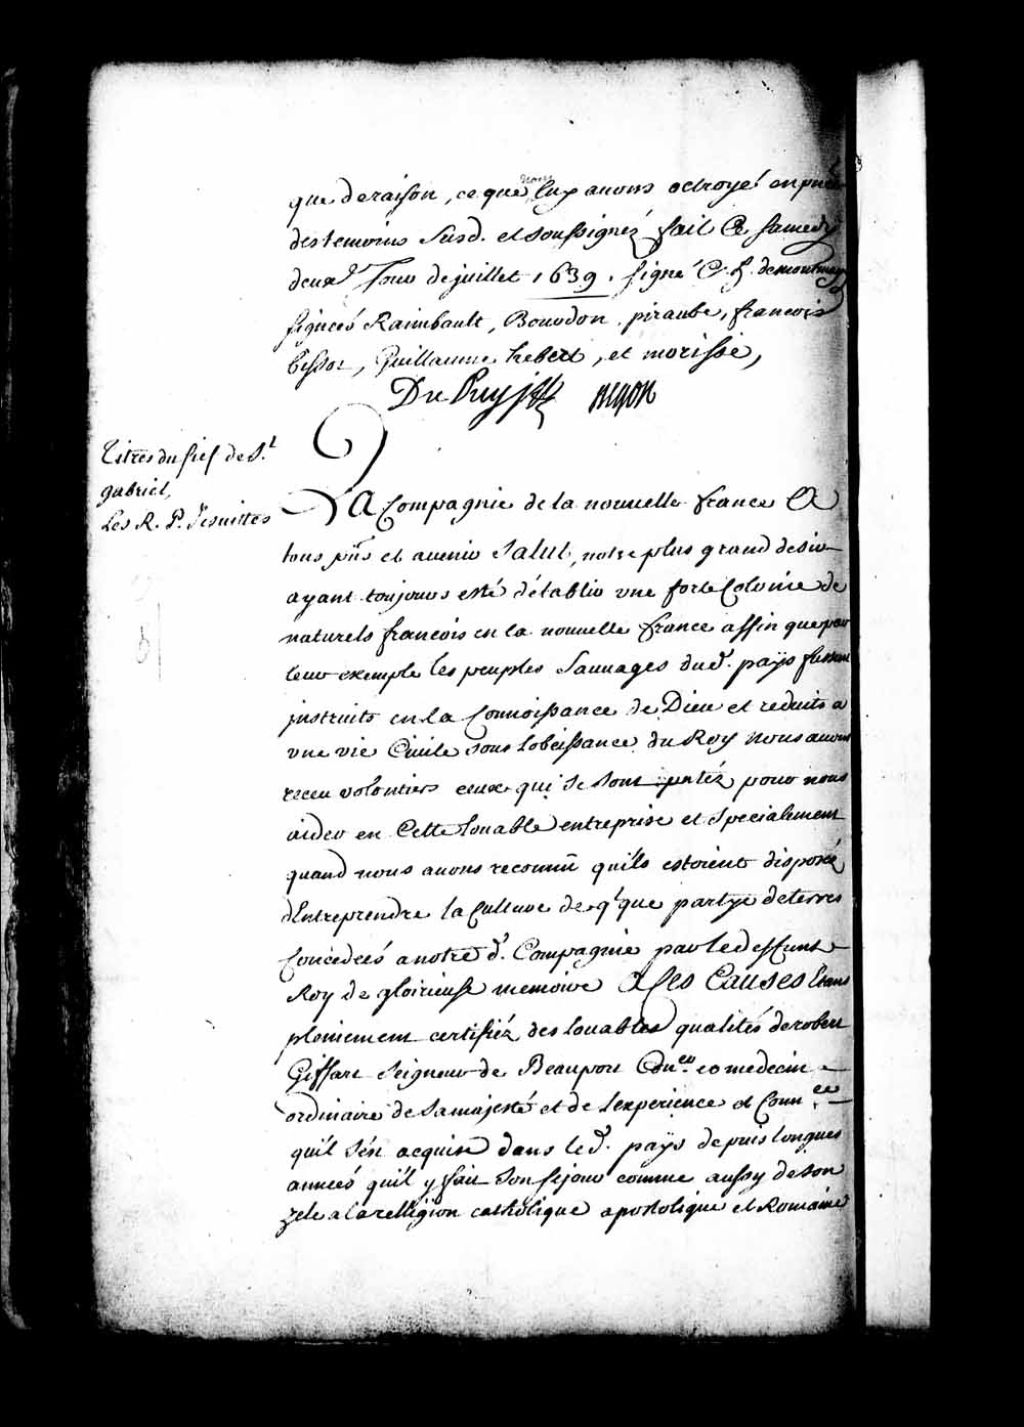 que deraison, ce que nous luy auons octroyé en
des temoins susd. et soussignéz fait Ce samedy
deux.e Jour de juillet 1639. signé C. h. demontmagny
signeés Raimbault, Bourdon, piraube, francois
bissot, Guillaume hebert, et morisse,
DuPuy Begon
Titres du fief de S.t
gabriel,
Les R. P. Jesuittes
La Compagnie de la nouuelle france A
tous pñs et auenir Salut, notre plus grand desir
ayant toujours esté d'établir vne forte Colonie de
naturels francois en la nouuelle france affin que par
leur exemple les peuples Sauuages dud. païs fussent
jnstruits en la Connoissance de Dieu et reduits a
vne vie Ciuile sous lobeissance du Roy nous auons
receu volontiers ceux qui se sont pñtéz pour nous
aider en Cette louable entreprise et specialement
quand nous auons reconnu quils estoient disposéz
d'Entreprendre la Culture de q'que partye de terres
Concedeés a notre d. Compagnie par le deffunt
Roy de glorieuse memoire A Ces Causes Etans
pleinement certifiéz des louables qualités de robert
Giffart seigneur de Beauport Con.er et medecin
ordinaire de Sa majesté et de l'experience et Conn.ce
qu'il s'est acquise dans led. païs depuis longues
anneés qu'il y fait son sejour comme aussy de son
zele a la relligion catholique apostolique et Romaine